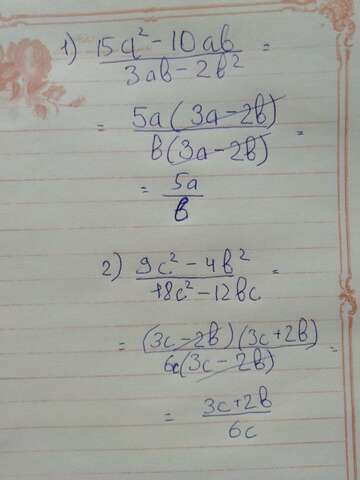 1) (15a² - 10ab)/(3ab - 2b²) =
= 5a(3a - 2b)/b(3a - 2b) =
= 5a/b
2) (9c² - 4b²)/(18c² - 12bc) =
= (3c - 2b)(3c + 2b)/6c(3c - 2b) =
= (3c + 2b)/6c